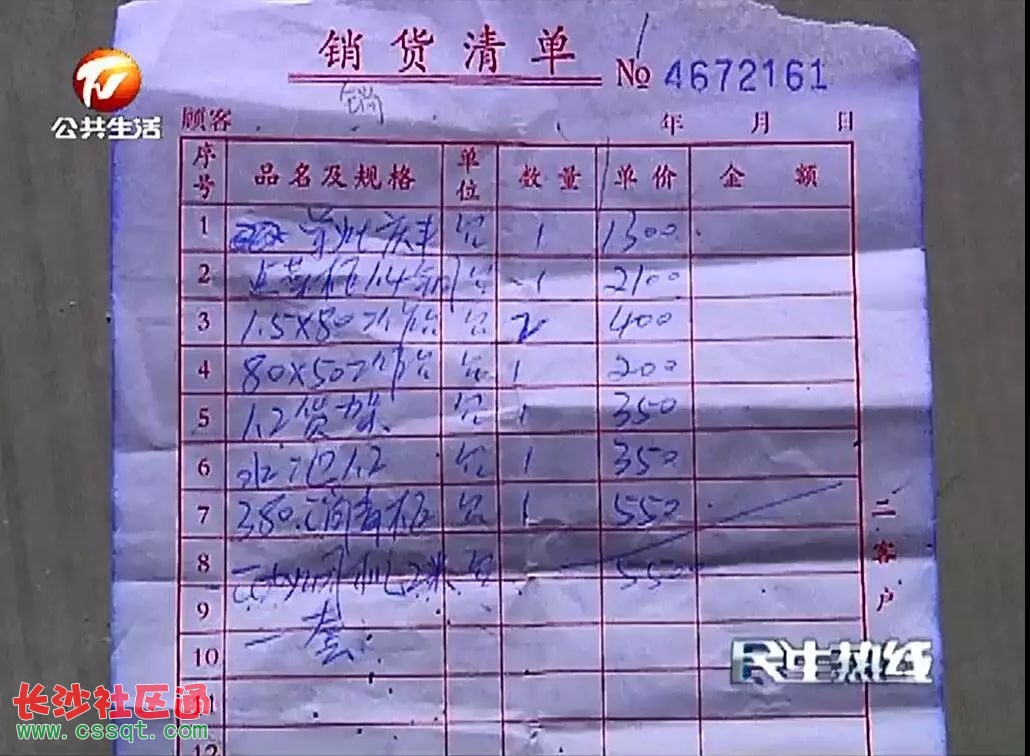 销货清单
№ 4672161
公共生活
顾客 年 月 日
序号 品名及规格 单位 数量 单价 金额
1 台 1 1300
2 1.4 台 1 2100
3 1.5×80 台 2 400
4 80×50 台 1 200
5 1.2货架 台 1 350
6 水池1.2 台 1 350
7 380消毒柜 台 1 550
8 台 550
9 一套
10
11
12
二客户
民生热线
长沙社区通
www.cssqt.com